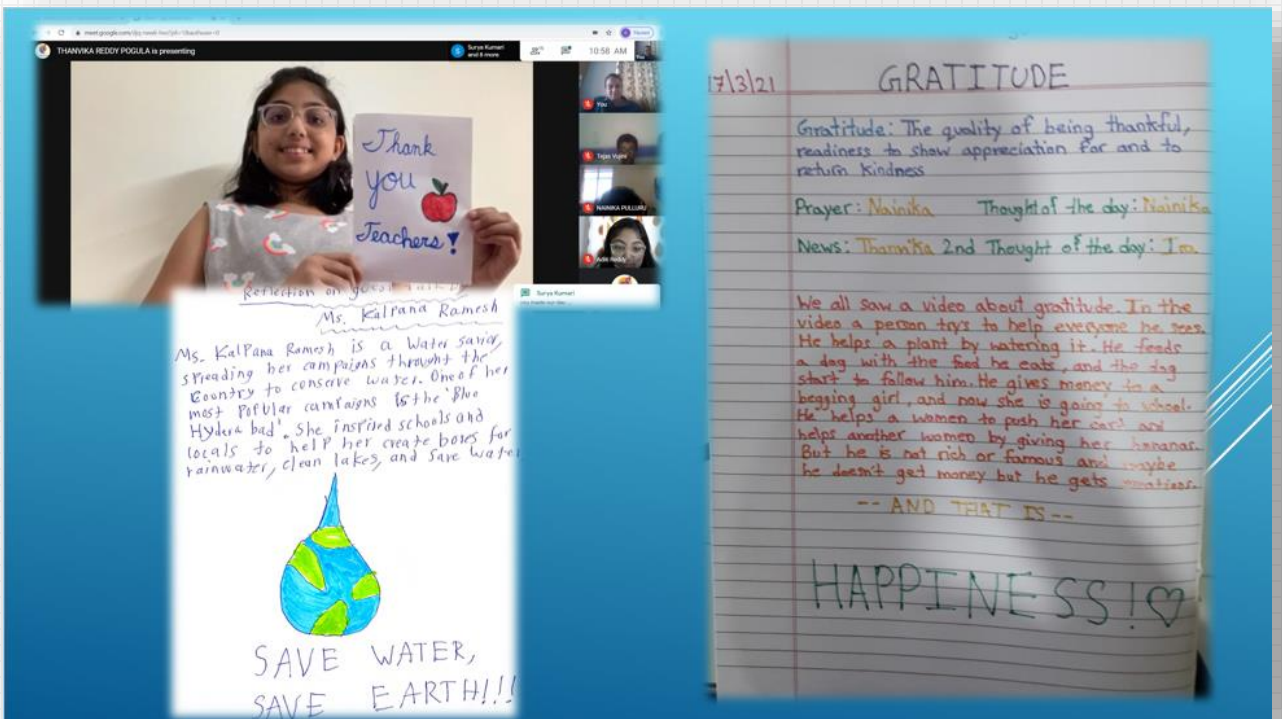 THANVIKA REDDY POGULA is presenting
Surya Kumari
and 8 more
10:58 AM
You
Thank
you
Teachers!
You
Tejas Vujini
NAINIKA PULLURU
Aditi Reddy
Surya Kumari
Reflection on guest Talk by
Ms. Kalpana Ramesh
Ms. KalPana Ramesh is a Water Savior,
spreading her campaigns throught the
Country to conserve water. One of her
most Popular campaigns is the 'Blue
Hydera bad'. She inspired schools and
locals to help her create bores for
rainwater, clean lakes, and Save Water
SAVE WATER,
SAVE EARTH!!!
17/3/21
GRATITUDE
Gratitude: The quality of being thankful,
readiness to show appreciation for and to
return kindness
Prayer: Nainika Thought of the day: Nainika
News: Thanvika 2nd Thought of the day: Ira
We all saw a video about gratitude. In the
video a person try's to help everyone he sees.
He helps a plant by watering it. He feeds
a dog with the food he eats, and the dog
start to follow him. He gives money to a
begging girl, and now she is going to school.
He helps a women to push her cart and
helps another women by giving her bananas.
But he is not rich or famous and maybe
he doesn't get money but he gets emotions.
-- AND THAT IS --
HAPPINESS!